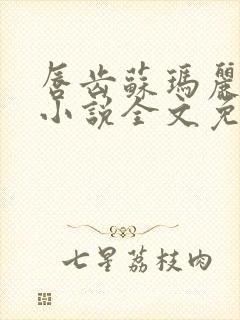 唇齿蘇瑪麗
小説全文免
七星荔枝肉